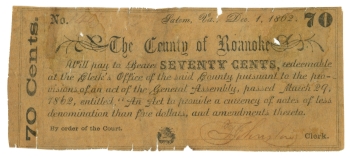 No.
Salem, Va., Dec. 1, 1862.
70
70 Cents.
The County of Roanoke
Will pay to Bearer SEVENTY CENTS, redeemable
at the Clerk's Office of the said County pursuant to the pro-
visions of an act of the General Assembly, passed March 29,
1862, entitled, "An Act to provide a currency of notes of less
denomination than five dollars, and amendments thereto.
By order of the Court.
Clerk.